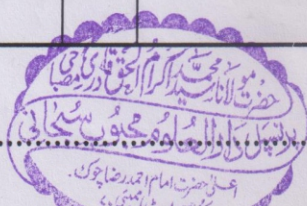 حضرت مولانا سید محمد اکرام الحق قادری مصباحی
پرنسپل دارالعلوم محبوب سبحانی
اعلیٰ حضرت امام احمد رضا چوک،